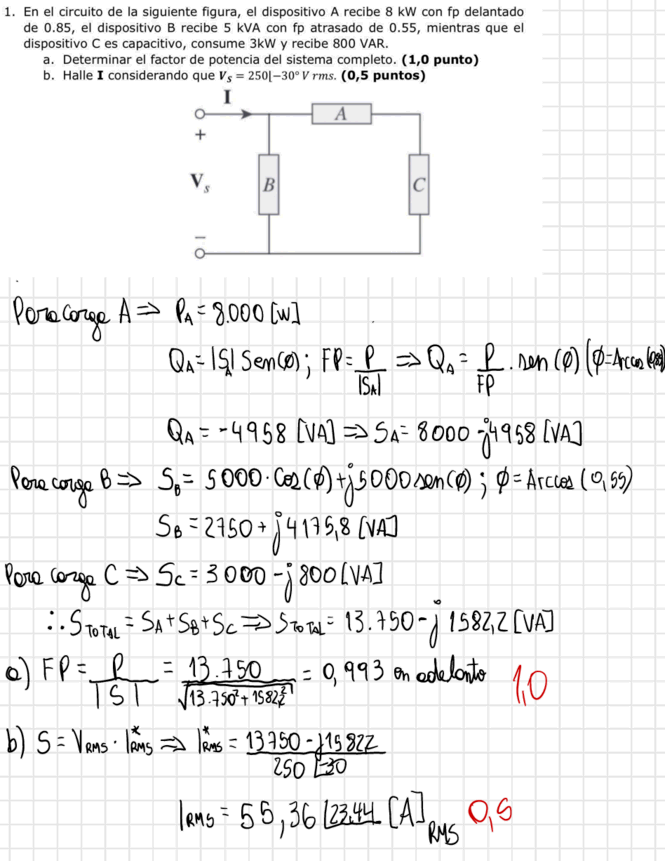 1. En el circuito de la siguiente figura, el dispositivo A recibe 8 kW con fp delantado
de 0.85, el dispositivo B recibe 5 kVA con fp atrasado de 0.55, mientras que el
dispositivo C es capacitivo, consume 3kW y recibe 800 VAR.
a. Determinar el factor de potencia del sistema completo. (1,0 punto)
b. Halle I considerando que V_S = 250⌊−30° V rms. (0,5 puntos)
I
A
+
V_s
B
C
−
Para carga A ⇒ P_A = 8.000 [W]
Q_A = |S_A| Sen(φ); FP = P/|S_A| ⇒ Q_A = P/FP . sen(φ) (φ=Arccos(0,85)
Q_A = -4958 [VA] ⇒ S_A = 8000 - j4958 [VA]
Para carga B ⇒ S_B = 5000·Cos(φ) + j5000sen(φ); φ = Arccos (0,55)
S_B = 2750 + j4175,8 [VA]
Para carga C ⇒ S_C = 3000 - j800 [VA]
∴ S_TOTAL = S_A + S_B + S_C ⇒ S_TOTAL = 13.750 - j 1582,2 [VA]
a) FP = P/|S| = 13.750/√(13.750² + 1582,2²) = 0,993 en adelanto 1,0
b) S = V_RMS · I*_RMS ⇒ I*_RMS = (13750 - j1582,2)/(250⌊-30)
I_RMS = 55,36⌊-23,44 [A]_RMS 0,5